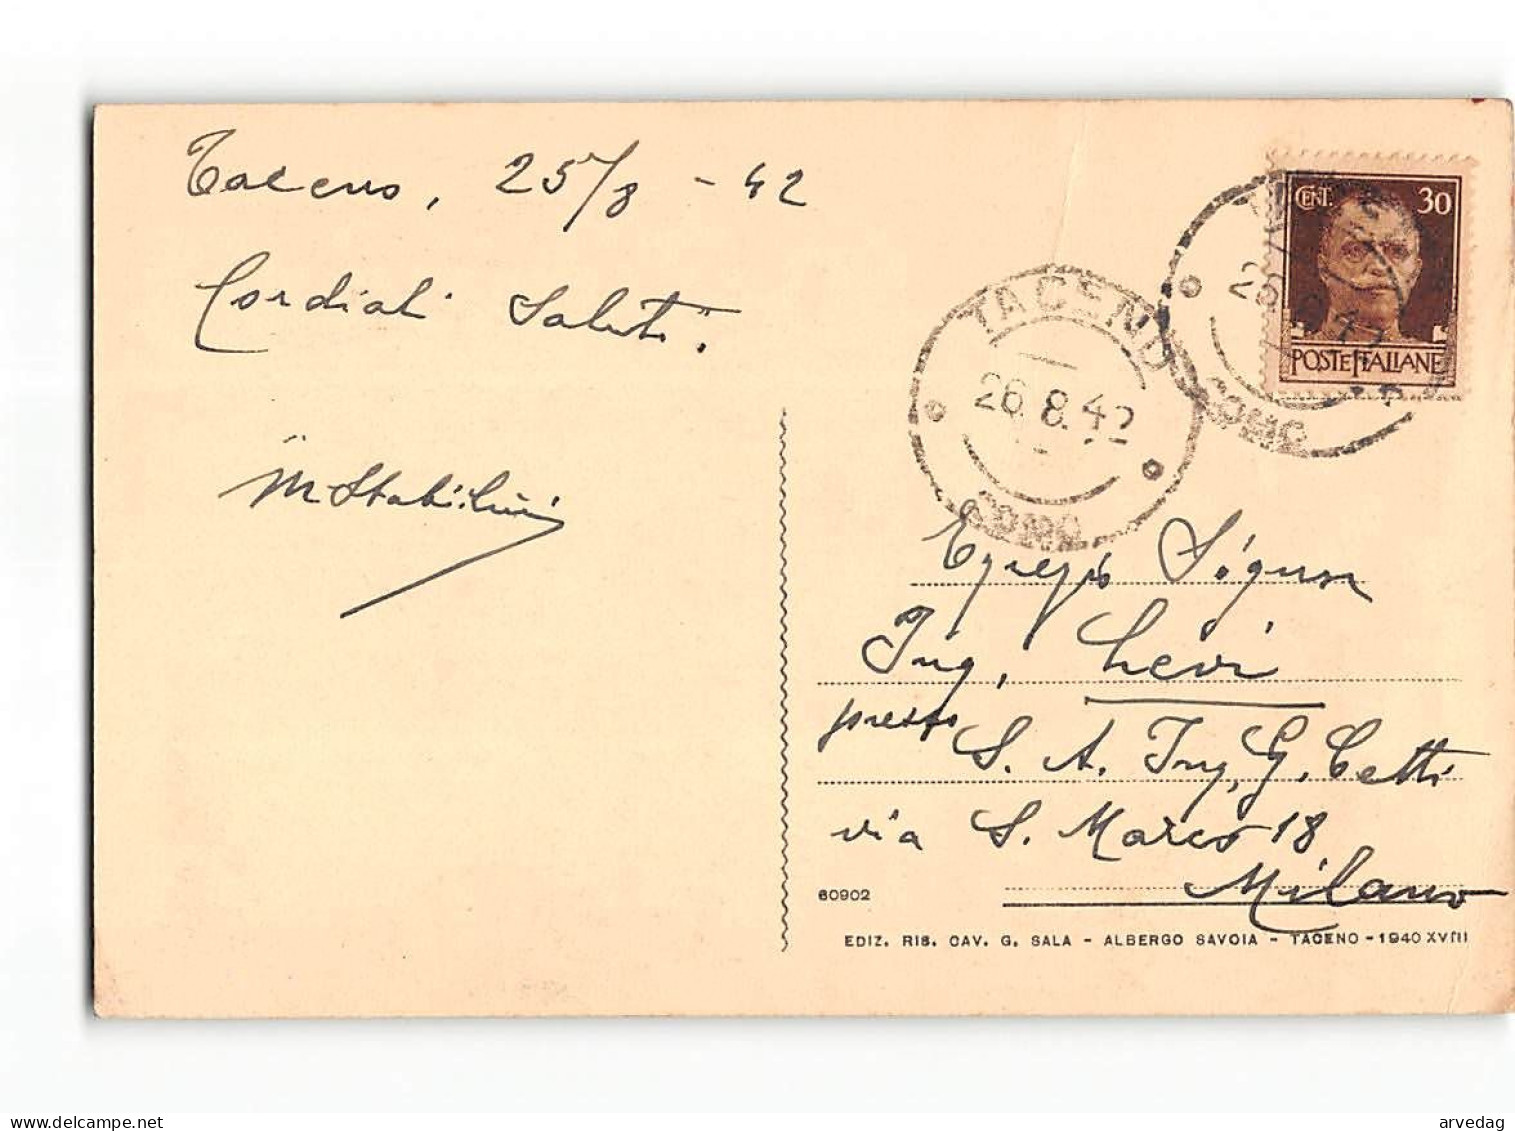 Taceno, 25/8 - 42
Cordiali Saluti.
CENT. 30
POSTE ITALIANE
TACENO
26.8.42
COMO
COMO
M Stabilini
Egregio Signor
Ing. Levi
presso S. A. Ing. G. Cetti
via S. Marco 18
Milano
60902
EDIZ. RIS. CAV. G. SALA - ALBERGO SAVOIA - TACENO - 1940 XVIII
delcampe.net
arvedag